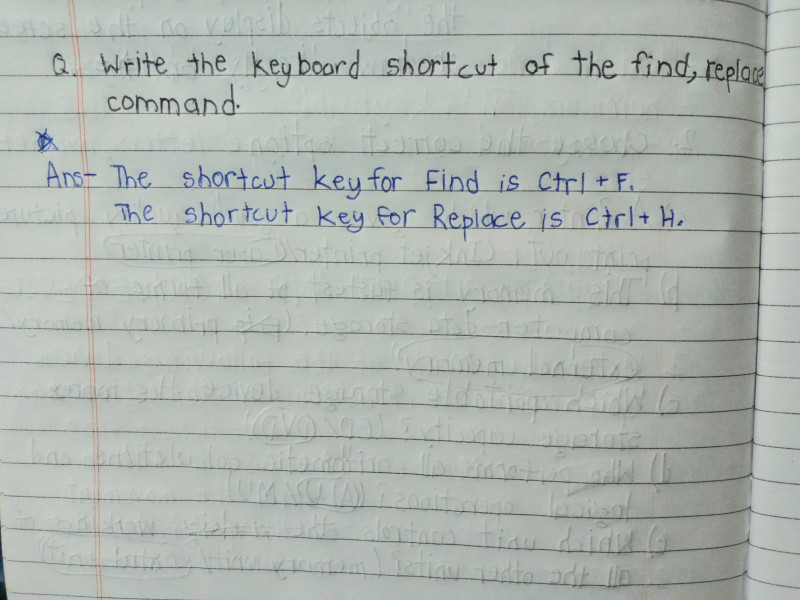 Q. Write the keyboard shortcut of the find, replace
command.
Ans- The shortcut key for Find is Ctrl + F.
The shortcut key for Replace is Ctrl + H.